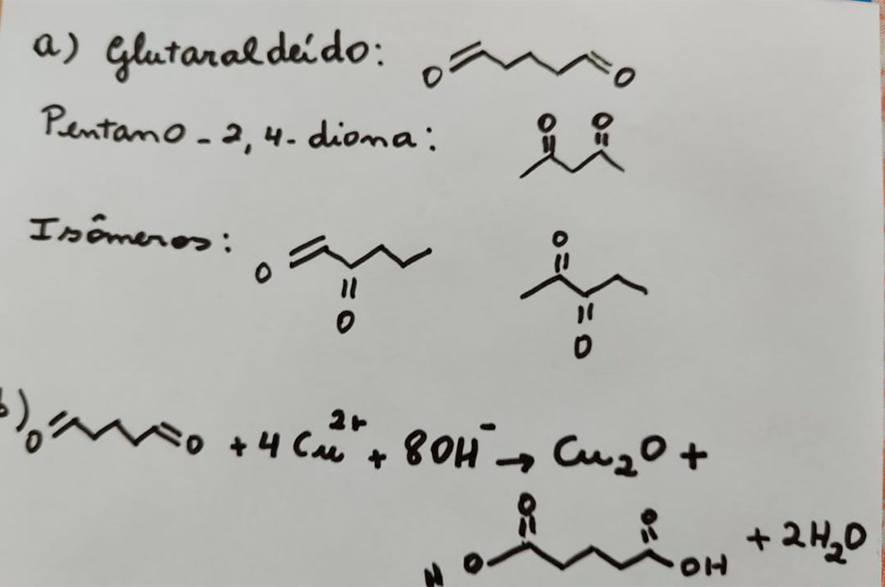 a) Glutaraldeído: O O
Pentano-2,4-diona: O O
Isômeros: O O O O
b) O O + 4 Cu²⁺ + 8OH⁻ → Cu₂O +
H O O O OH + 2H₂O